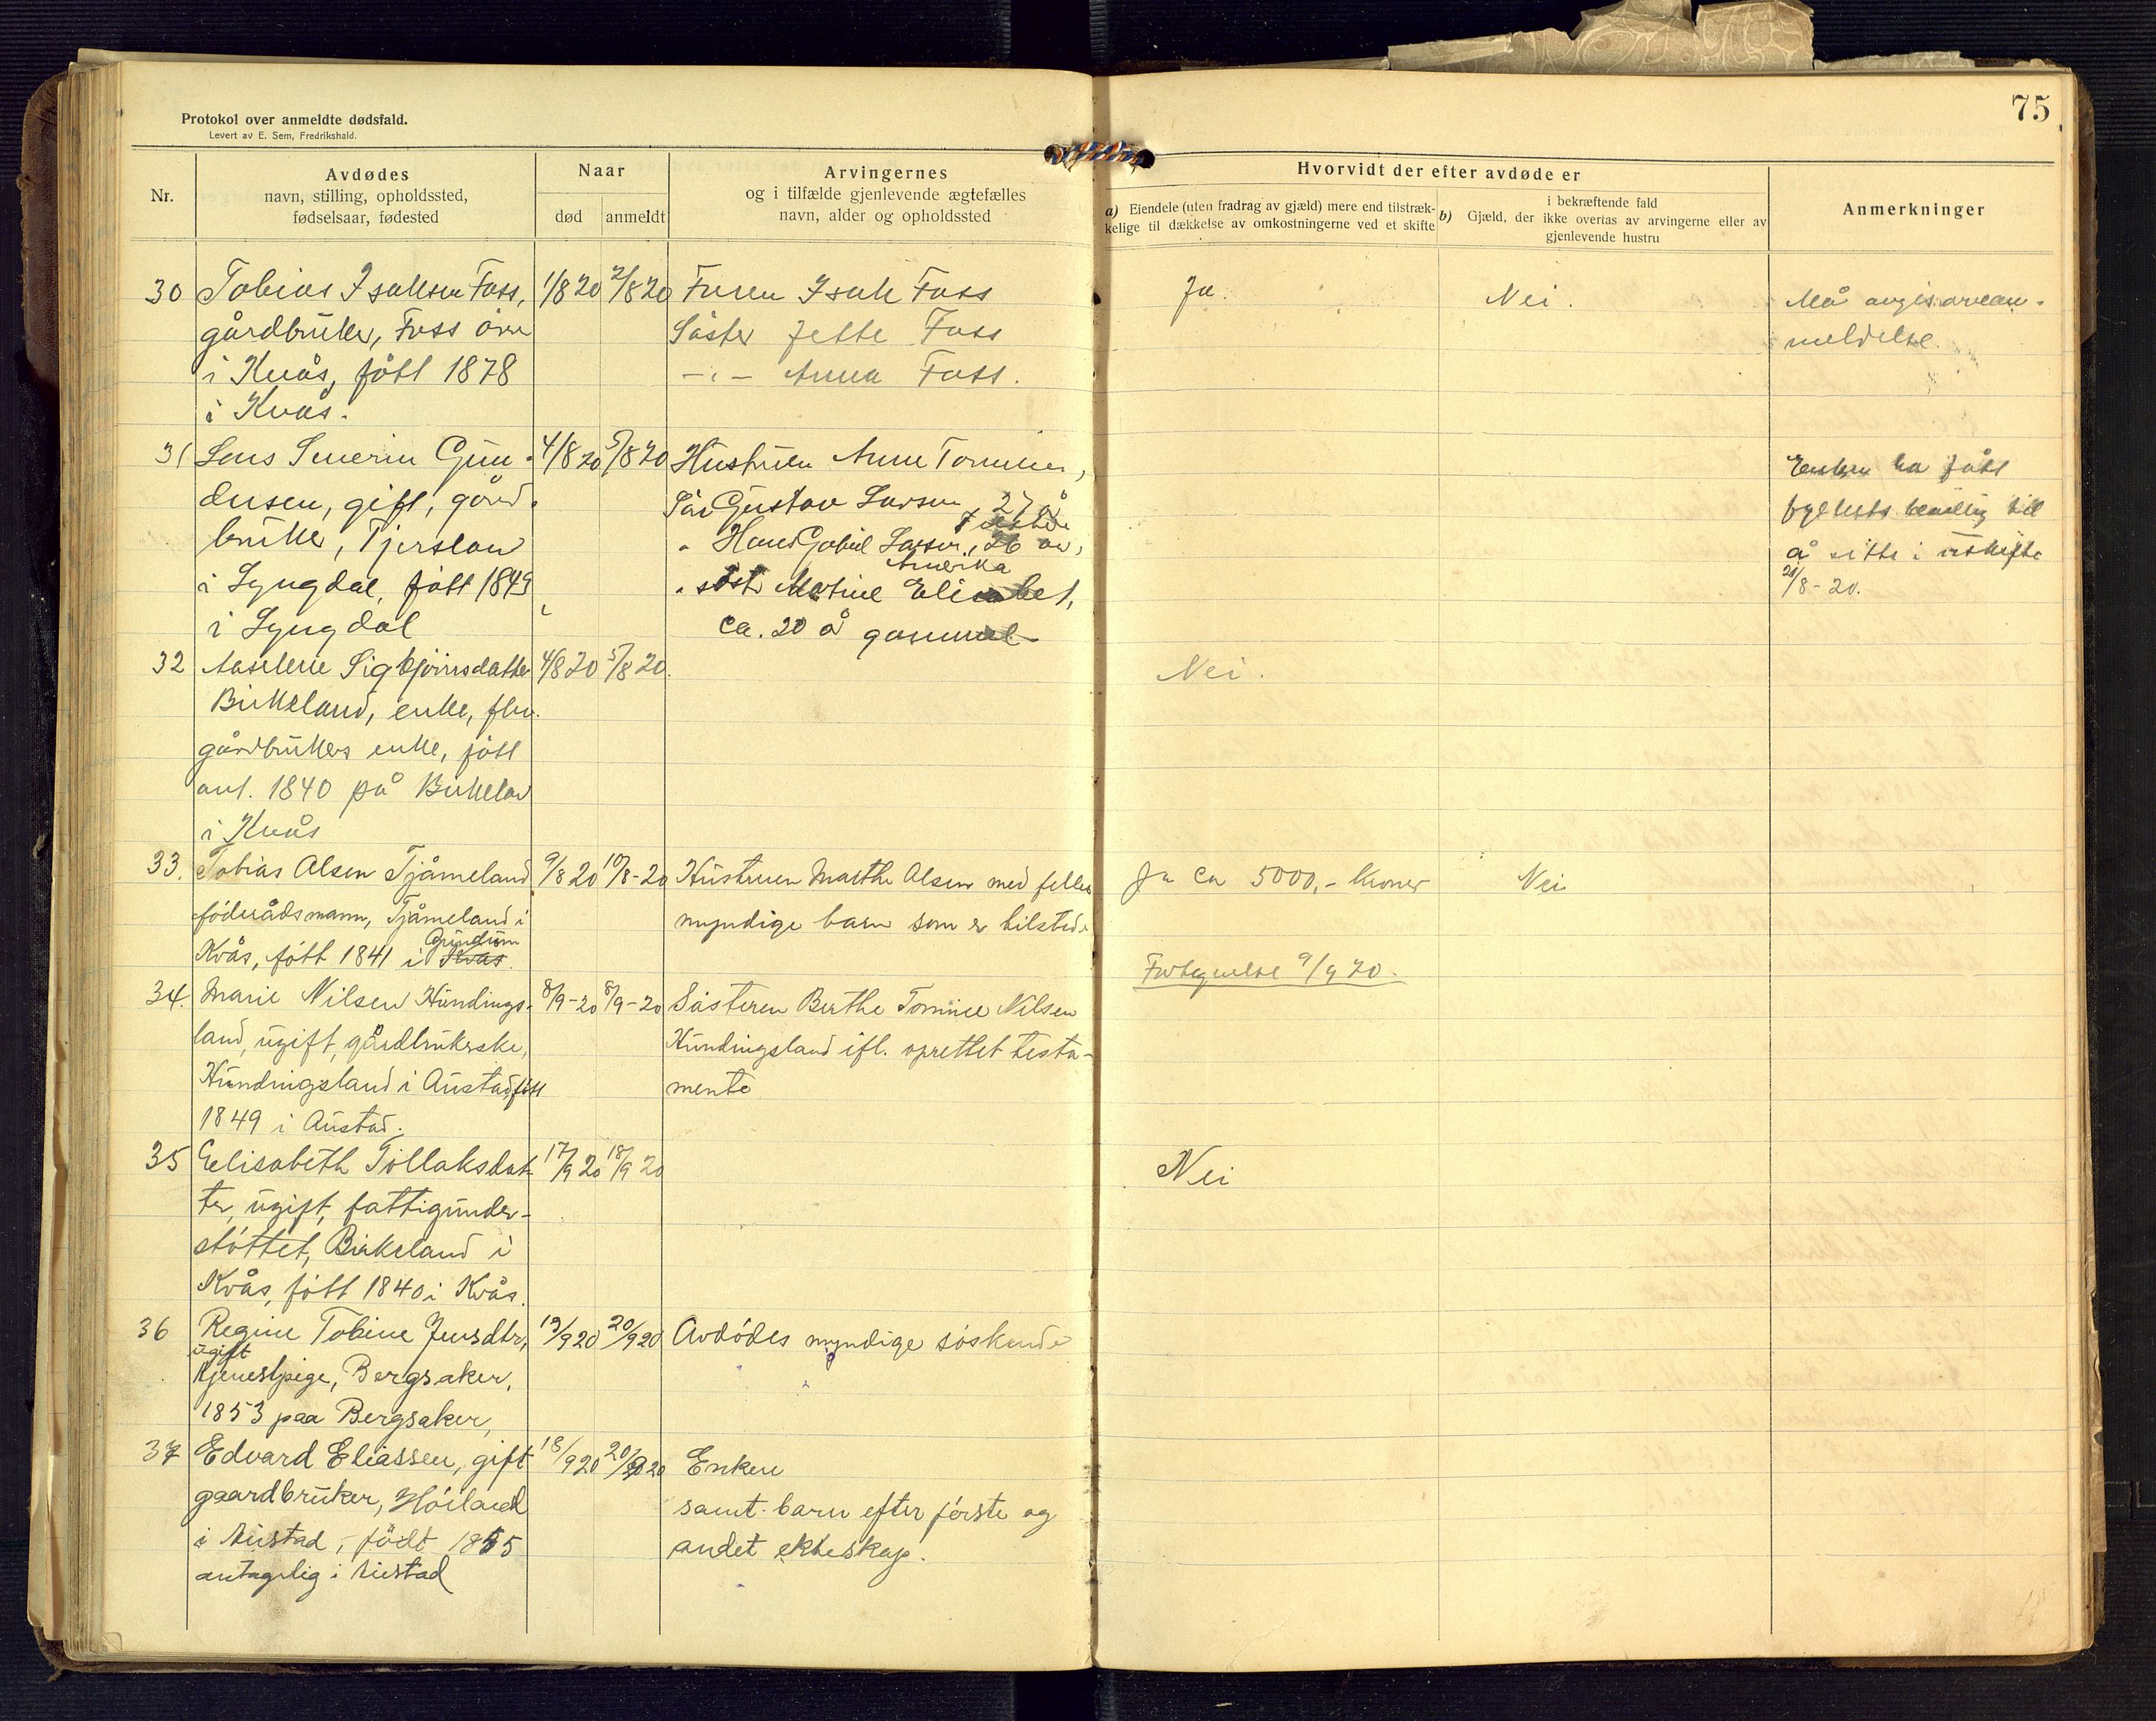 75
Protokol over anmeldte dødsfald.
Levert av E. Sem, Fredrikshald.
Nr.
Avdødes
navn, stilling, opholdssted,
fødselsaar, fødested
Naar
død anmeldt
Arvingernes
og i tilfælde gjenlevende ægtefælles
navn, alder og opholdssted
Hvorvidt der efter avdøde er
a) Eiendele (uten fradrag av gjæld) mere end tilstræk-
kelige til dækkelse av omkostningerne ved et skifte
b) Gjæld, der i bekræftende fald
ikke overtas av arvingerne eller av
gjenlevende hustru
Anmerkninger
30 Tobias Isaksen Foss, 1/8 20 2/8 20 Faren Isak Foss Ja. Nei.
gårdbruker, Foss övre Söster Jette Foss
i Kvås, fött 1878 -"- Anna Foss.
i Kvås.
Må avgis arvean-
meldelse.
31 Lars Severin Gun- 4/8 20 5/8 20 Hustruen Anne Tomine,
dersen, gift, gård- Gustav Larsen 27 å
bruker, Tjerslan Hans Gabriel Larsen, 26 år,
Amerika
i Lyngdal, fött 1849 Martine Elisabet,
i Lyngdal ca. 20 å gammel
Enken ha fått
fylkets bevilling til
å sitte i uskifte
21/8-20.
32 Aaselene Sigbjörnsdatter 4/8 20 5/8 20. Nei.
Birkeland, enke, fhv.
gårdbrukers enke, fött
ant. 1840 på Birkeland
i Kvås
33. Tobias Olsen Tjåmeland 9/8 20 10/8-20 Hustruen Marthe Olsen med felles Ja ca 5000,- kroner Nei
föderådsmann, Tjåmeland i myndige barn som er tilstede
Grindum
Kvås, fött 1841 i Kvås.
Fortegnelse 9/9 20.
34. Marie Nilsen Hundings- 8/9-20 8/9-20 Sösteren Berthe Tomine Nilsen
land, ugift, gårdbrukerske, Hundingsland ifl. oprettet testa-
Hundingsland i Austad, fött mente
1849 i Austad.
35 Elisabeth Tollaksdat- 17/9 20 18/9 20 Nei
ter, ugift, fattigunder-
stöttet, Birkeland i
Kvås, fött 1840 i Kvås.
36 Regine Tobine Jensdtr, 19/9 20 20/9 20 Avdödes myndige söskende
ugift
tjenestpige, Bergsaker,
1853 paa Bergsaker,
37 Edvard Eliassen, gift 18/9 20 20/9 20 Enken
gaardbruker, Höiland samt barn efter förste og
i Austad, födt 1855 andet ekteskap.
antagelig i Austad